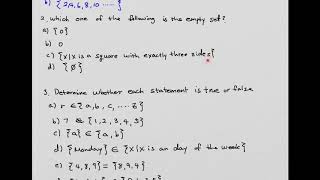 b) {2,4,6,8,10 ......}
2. which one of the following is the empty set?
a) {0}
b) 0
c) {x|x is a square with exactly three sides}
d) {Ø}
3. Determine whether each statement is true or false
a) r ∈ {a,b,c,.... z}
b) 7 ∉ {1,2,3,4,5}
c) {a} ∈ {a,b,c}
d) {Monday} ∈ {x|x is an day of the week}
e) {4,8,9} = {8,9,4}